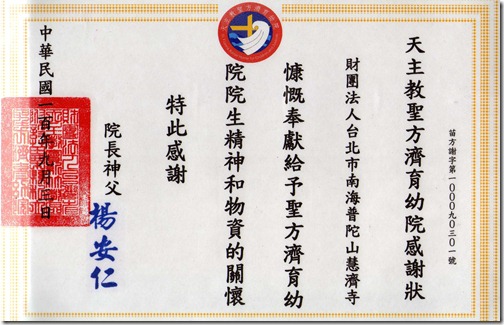 苗方謝字第一000九0三0一號
天主教聖方濟育幼院感謝狀
財團法人台北市南海普陀山慧濟寺
慷慨奉獻給予聖方濟育幼
院院生精神和物資的關懷
特此感謝
院長神父
楊安仁
中華民國一百年九月三日